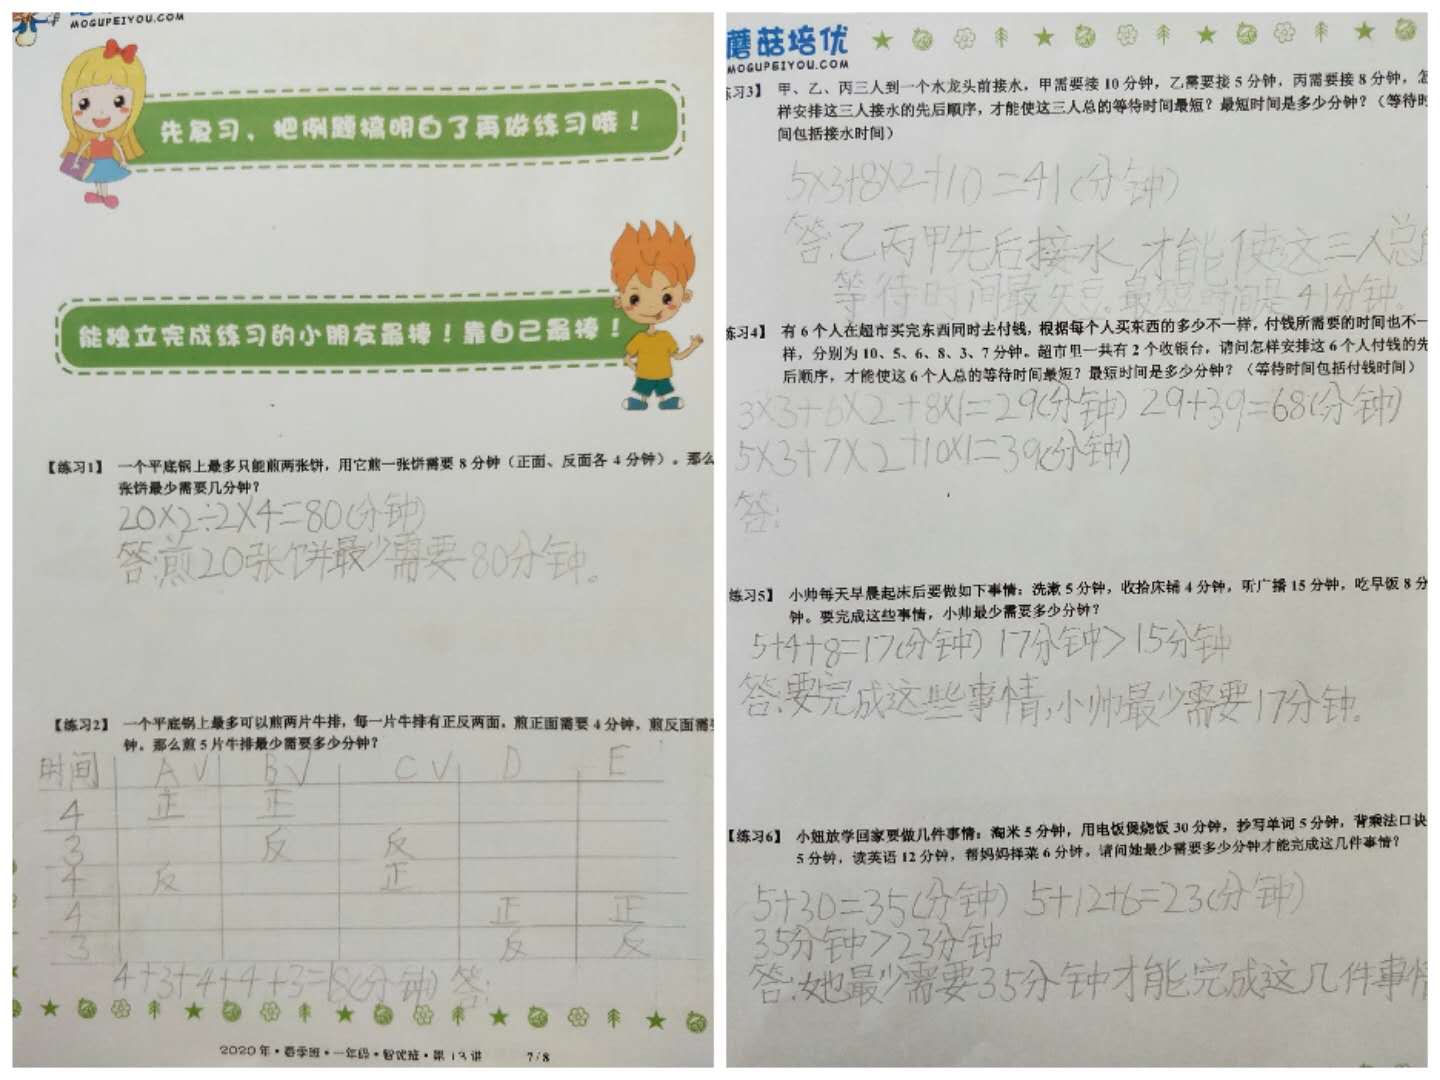 MOGUPEIYOU.COM
先复习、把例题搞明白了再做练习哦！
能独立完成练习的小朋友最棒！靠自己最棒！
【练习1】 一个平底锅上最多只能煎两张饼，用它煎一张饼需要 8 分钟（正面、反面各 4 分钟）。那么
张饼最少需要几分钟？
20×2÷2×4=80(分钟)
答:煎20张饼最少需要80分钟。
【练习2】 一个平底锅上最多可以煎两片牛排，每一片牛排有正反两面，煎正面需要 4 分钟，煎反面需要
钟。那么煎 5 片牛排最少需要多少分钟？
时间 A√ B√ C√ D E
4 正 正
3 反 反
4 反 正
4 正 正
3 反 反
4+3+4+4+3=18(分钟) 答:
2020 年·春季班·一年级·智优班·第 13 讲 7/8
蘑菇培优
MOGUPEIYOU.COM
练习3】 甲、乙、丙三人到一个水龙头前接水，甲需要接 10 分钟，乙需要接 5 分钟，丙需要接 8 分钟，怎
样安排这三人接水的先后顺序，才能使这三人总的等待时间最短？最短时间是多少分钟？（等待时
间包括接水时间）
5×3+8×2+10=41(分钟)
答:乙丙甲先后接水,才能使这三人总的
等待时间最短,最短时间是41分钟。
练习4】 有 6 个人在超市买完东西同时去付钱，根据每个人买东西的多少不一样，付钱所需要的时间也不一
样，分别为 10、5、6、8、3、7 分钟。超市里一共有 2 个收银台，请问怎样安排这 6 个人付钱的先
后顺序，才能使这 6 个人总的等待时间最短？最短时间是多少分钟？（等待时间包括付钱时间）
3×3+6×2+8×1=29(分钟) 29+39=68(分钟)
5×3+7×2+10×1=39(分钟)
答:
练习5】 小帅每天早晨起床后要做如下事情：洗漱 5 分钟，收拾床铺 4 分钟，听广播 15 分钟，吃早饭 8 分
钟。要完成这些事情，小帅最少需要多少分钟？
5+4+8=17(分钟) 17分钟>15分钟
答:要完成这些事情,小帅最少需要17分钟。
【练习6】 小妞放学回家要做几件事情：淘米 5 分钟，用电饭煲烧饭 30 分钟，抄写单词 5 分钟，背乘法口诀
5 分钟，读英语 12 分钟，帮妈妈择菜 6 分钟，请问她最少需要多少分钟才能完成这几件事情？
5+30=35(分钟) 5+12+6=23(分钟)
35分钟>23分钟
答:她最少需要35分钟才能完成这几件事情